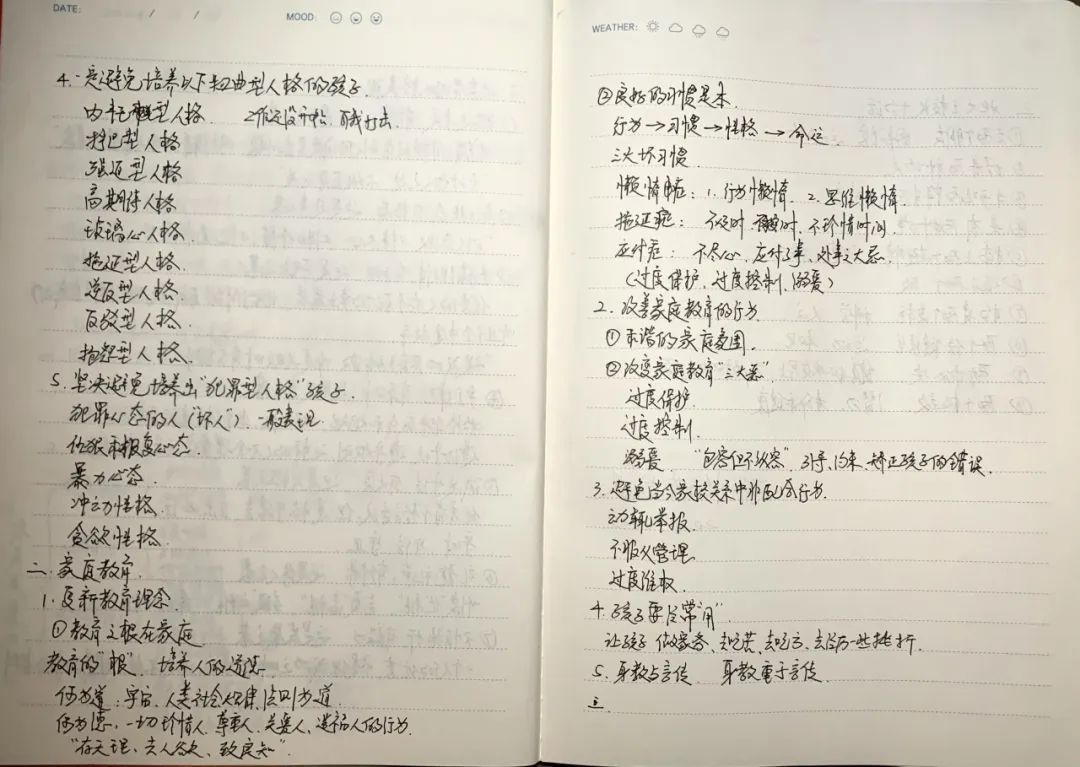 DATE: / /
MOOD:
4. 一定避免培养以下扭曲型人格的孩子.
型人格.
型人格
强迫型人格
高期待人格
玻璃心人格.
拖延型人格.
逆反型人格
反驳型人格.
指控型人格.
5. 坚决避免培养出"犯罪型人格"孩子
犯罪心态的人("坏人"). 一般表现
仇恨和报复心态.
暴力心态.
冲动性格.
贪欲性格.
二、家庭教育.
1. 更新教育理念.
①教育之根在家庭
教育的"根". 培养人的道德
何为道:宇宙、人类社会规律法则为道
何为德:一切珍惜人、尊重人、关爱人、造福人的行为.
"存天理、去人欲、致良知".
WEATHER:
②良好的习惯是本.
行为→习惯→性格→命运.
三大坏习惯.
懒惰症:1. 行为懒惰. 2. 思维懒惰
拖延症: 不及时、 不珍惜时间.
应付症: 不尽心、应付了事、 之大忌
(过度保护、过度控制、溺爱)
2. 改善家庭教育的行为.
①和谐的家庭氛围.
②改变家庭教育"三大恶"
过度保护.
过度控制.
溺爱. "包容但不纵容". 引导、约束、矫正孩子的错误.
3. 避免当今家校关系中非配合行为.
动辄举报.
不服从管理.
过度维权.
4. 孩子要经常"用"
让孩子做家务、去吃苦、去吃亏、去经历一些挫折.
5. 身教与言传. 身教重于言传.
三.